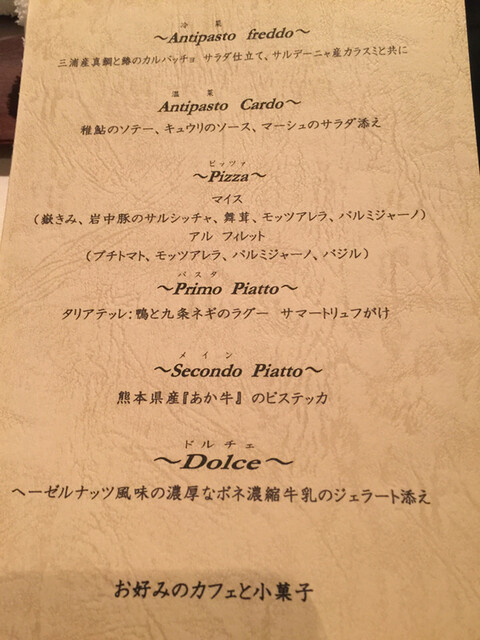 冷菜
～Antipasto freddo～
三浦産真鯛と鰆のカルパッチョ サラダ仕立て、サルデーニャ産カラスミと共に
温菜
Antipasto Cardo～
稚鮎のソテー、キュウリのソース、マーシュのサラダ添え
ピッツァ
～Pizza～
マイス
（嶽きみ、岩中豚のサルシッチャ、舞茸、モッツアレラ、パルミジャーノ）
アル フィレット
（プチトマト、モッツアレラ、パルミジャーノ、バジル）
パスタ
～Primo Piatto～
タリアテッレ：鴨と九条ネギのラグー サマートリュフがけ
メイン
～Secondo Piatto～
熊本県産『あか牛』のビステッカ
ドルチェ
～Dolce～
ヘーゼルナッツ風味の濃厚なボネ濃縮牛乳のジェラート添え
お好みのカフェと小菓子